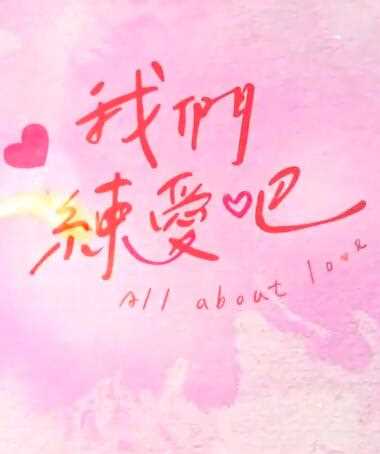 我們
練愛吧
All about love